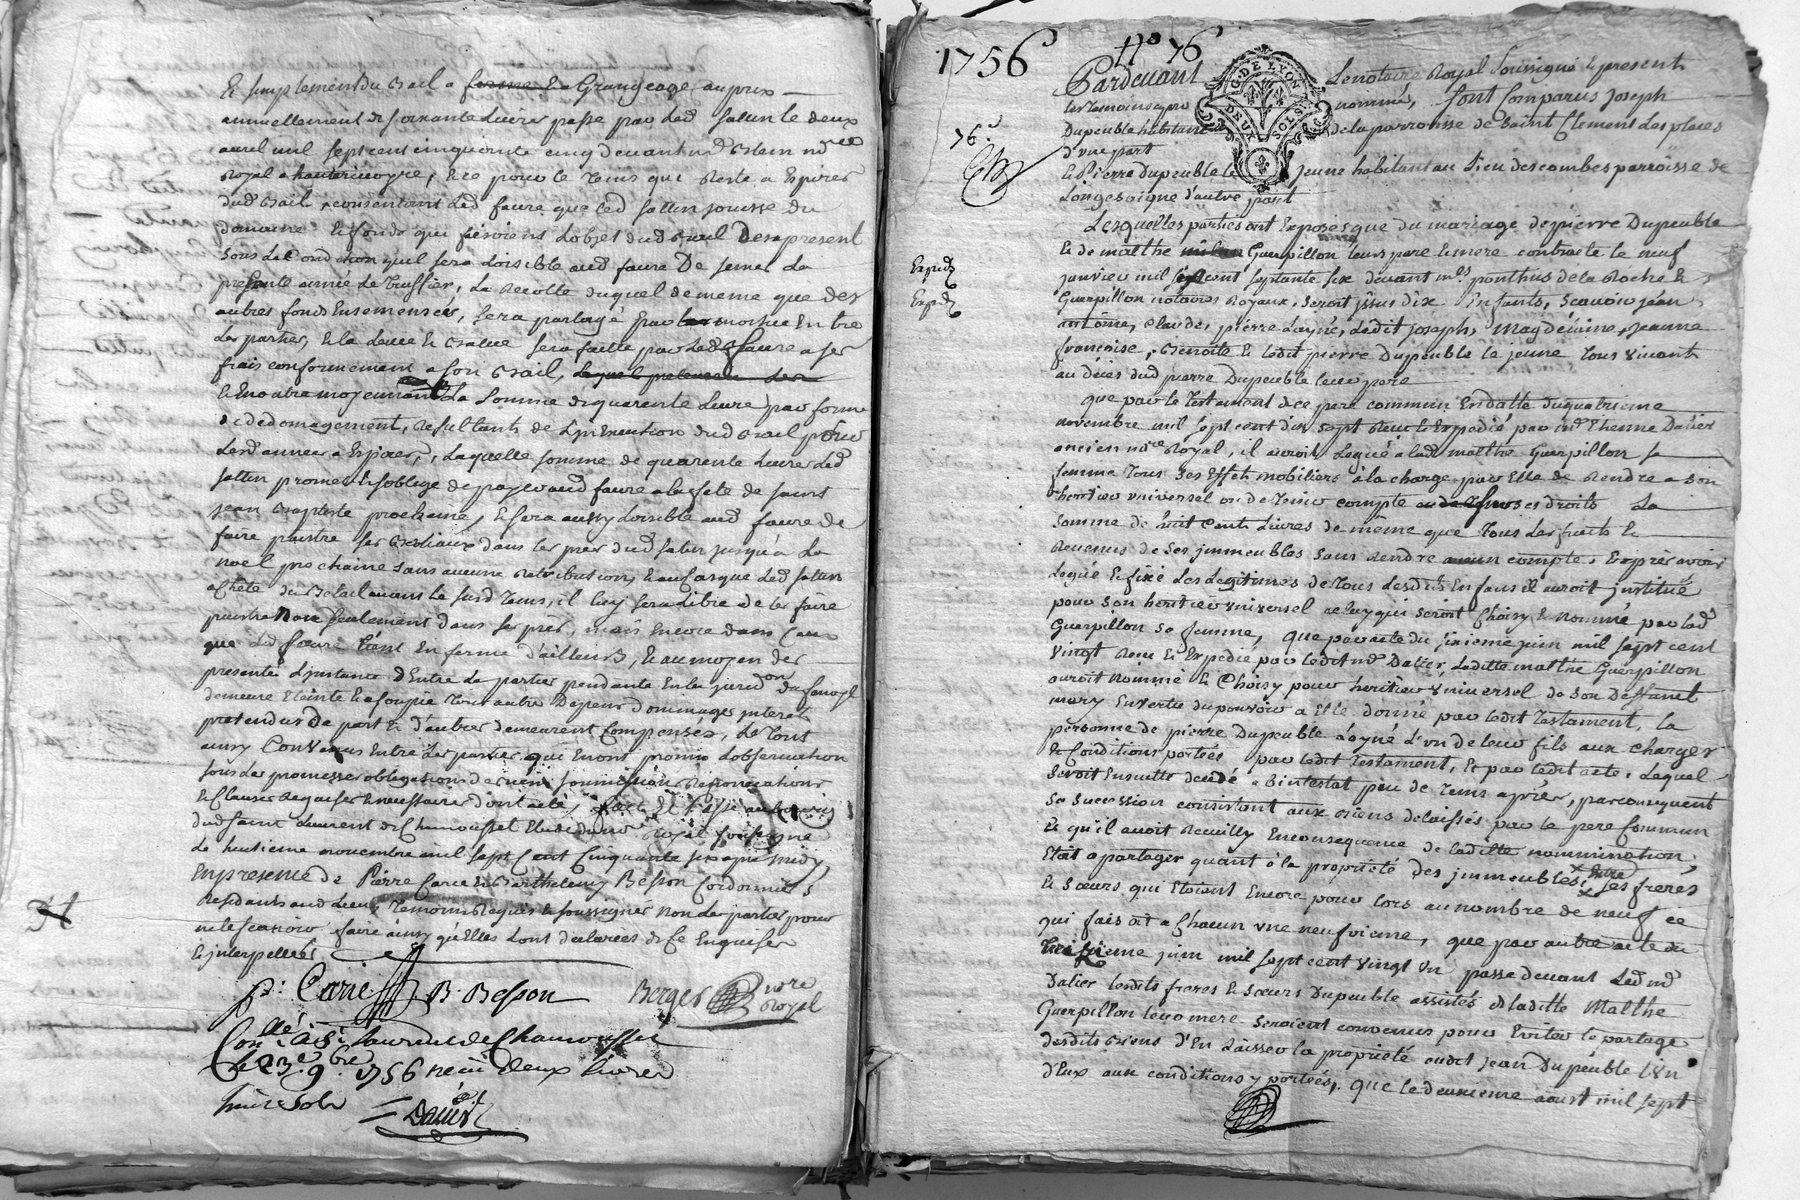 et simplement du Bail a ferme et Grangeage, au prix
annuellement de soixante Livres passé par led. sattin le deux
avril mil sept cent cinquante cinq devant me
Royal a hauterivoyre, et ce pour le tems qui Reste a Expirer
dud. Bail, consentant led. faure que led. sattin jouisse du
domaine et fonds qui faisoient L'objet dud. Bail Des a present
sous la Condition qu'il sera Loisible aud. faure De semer La
presente année Le Truffier, La Recolte duquel de meme que des
autres fonds Ensemensés, sera partagé par moitié Entre
Les parties, et la Levée et Batue sera faitte par Led. faure a ses
frais conformement a son Bail,
et En outre moyennant La somme de quarente Livre par forme
de dedomagement, Resultants de L'inexecution dud. Bail pour
Lesd. années a Expirer, Laquelle somme de quarente Livres Led.
sattin promet et s'oblige de payer aud. faure a la fete de saint
jean Baptiste prochaine, et sera aussy Loisible aud. faure de
faire paistre ses Bestiaux dans les prés dud. jusqu'a La
noel prochaine sans aucune Retribution, et au cas que Led. sattin
achete du Betail avant le susd. Tems, il luy sera Libre de les faire
paistre Non seulement dans ses prés, mais Encore dans Ceux
que Led. faure tient En ferme d'ailleurs, et au moyen des
presentes L'instance d'Entre Les parties pendante En la jurid.on
demeure Eteinte et assoupie Tous autres Depens Dommages interets
pretendus De part et d'autres demeurent Compensés, Le Tout
ainsy Convenus Entre Les parties qui En ont promis L'observation
sous Les promesses obligations de soumissions Renonciations
et Clauses Requises et necessaires dont acte, fait et passé au bourg
dud. saint Laurent de Chamousset Etude du no.re Royal soussigné
Le huitieme novembre mil sept Cent Cinquante six apres midy,
En presence de Pierre Carie et Barthelemy Besson Cordonniers
Residants aud. Lieu, Temoins Requis et soussignés non Les parties pour
ne le sçavoir faire ainsy qu'Elles L'ont declarées de Ce Enquises
et interpellées
p: Carie B. Besson Berger nore Royal
Con.llé a St. Laurent de Chamousset
Le 23e 9bre 1756 Reçu deux Livres
huit sols
Dalier
1756 No 76
GDE LYON
DEUX SOLS
76e
Pardevant Le notaire Royal soussigné et present
les temoins apres nommé, sont Comparus joseph
Dupeuble habitant de la parroisse de saint Clement Les places
d'une part
et Pierre Dupeuble le jeune habitant au Lieu des combes parroisse de
Longessaigne d'autre part
Lesquelles parties ont Exposés que du mariage de pierre Dupeuble
et de malthe Guerpillon leurs pere et mere contracté le neuf
Exped.
janvier mil six cent septante six devant mes. ponthus de la Roche et
Exped.
Guerpillon notaires Royaux, seroit issus dix Enfants, sçavoir jean,
antoine, claude, pierre L'ayné, Ledit joseph, Magdelaine, jeanne
françoise, Benoite et ledit pierre Dupeuble le jeune Tous vivants
au déces dud. pierre Dupeuble leur pere
que par le Testament de ce pere commun En datte du quatrieme
novembre mil sept cent dix sept Reçu et Expedié par me. Etienne Dalier
ancien no.re Royal, il auroit Legué a lad. malthe Guerpillon sa
femme Tous ses Effets mobiliers à la charge par Elle de Rendre a son
heritier universel ou de Tenir compte sur ses droits La
somme de huit Cent Livres de meme que Tous Les fruits et
Revenus de ses immeubles sans Rendre aucun compte, Et aprés avoir
Legué et fixé Les Legitimes de Tous lesdits Enfans il auroit institué
pour son heritier universel celuy qui seroit Choisy et Nommé par lad.
Guerpillon sa femme, que par acte du juin mil sept cent
vingt Reçu et Expedié par ledit me. Dalier, Laditte malthe Guerpillon
auroit Nommé et Choisy pour heritier universel de son deffunt
mary En vertu du pouvoir a Elle donné par ledit Testament, la
personne de pierre Dupeuble L'ayné L'un de leur fils aux charges
et Conditions portées par ledit Testament, et par ledit acte, Lequel
seroit Ensuitte decedé abintestat peu de Tems aprés, par consequent
sa succession consistant aux Biens delaissés par le pere Commun
et qu'il avoit Recuilly En consequence de laditte nommination,
Etoit a partager quant à la proprieté des immeubles, Entre ses freres
et sœurs qui Etoient Encore pour lors au nombre de neuf ce
qui faisoit a Chacun une neufvieme, que par autre acte du
juin mil sept cent vingt un passé devant Led. me.
Dalier Lesdits freres et sœurs Dupeuble assistés de laditte Malthe
Guerpillon leur mere seroient convenus pour Eviter le partage
desdits Biens d'En Laisser la proprieté audit jean Dupeuble L'un
d'Eux aux conditions y portées, que le deuxieme aoust mil sept